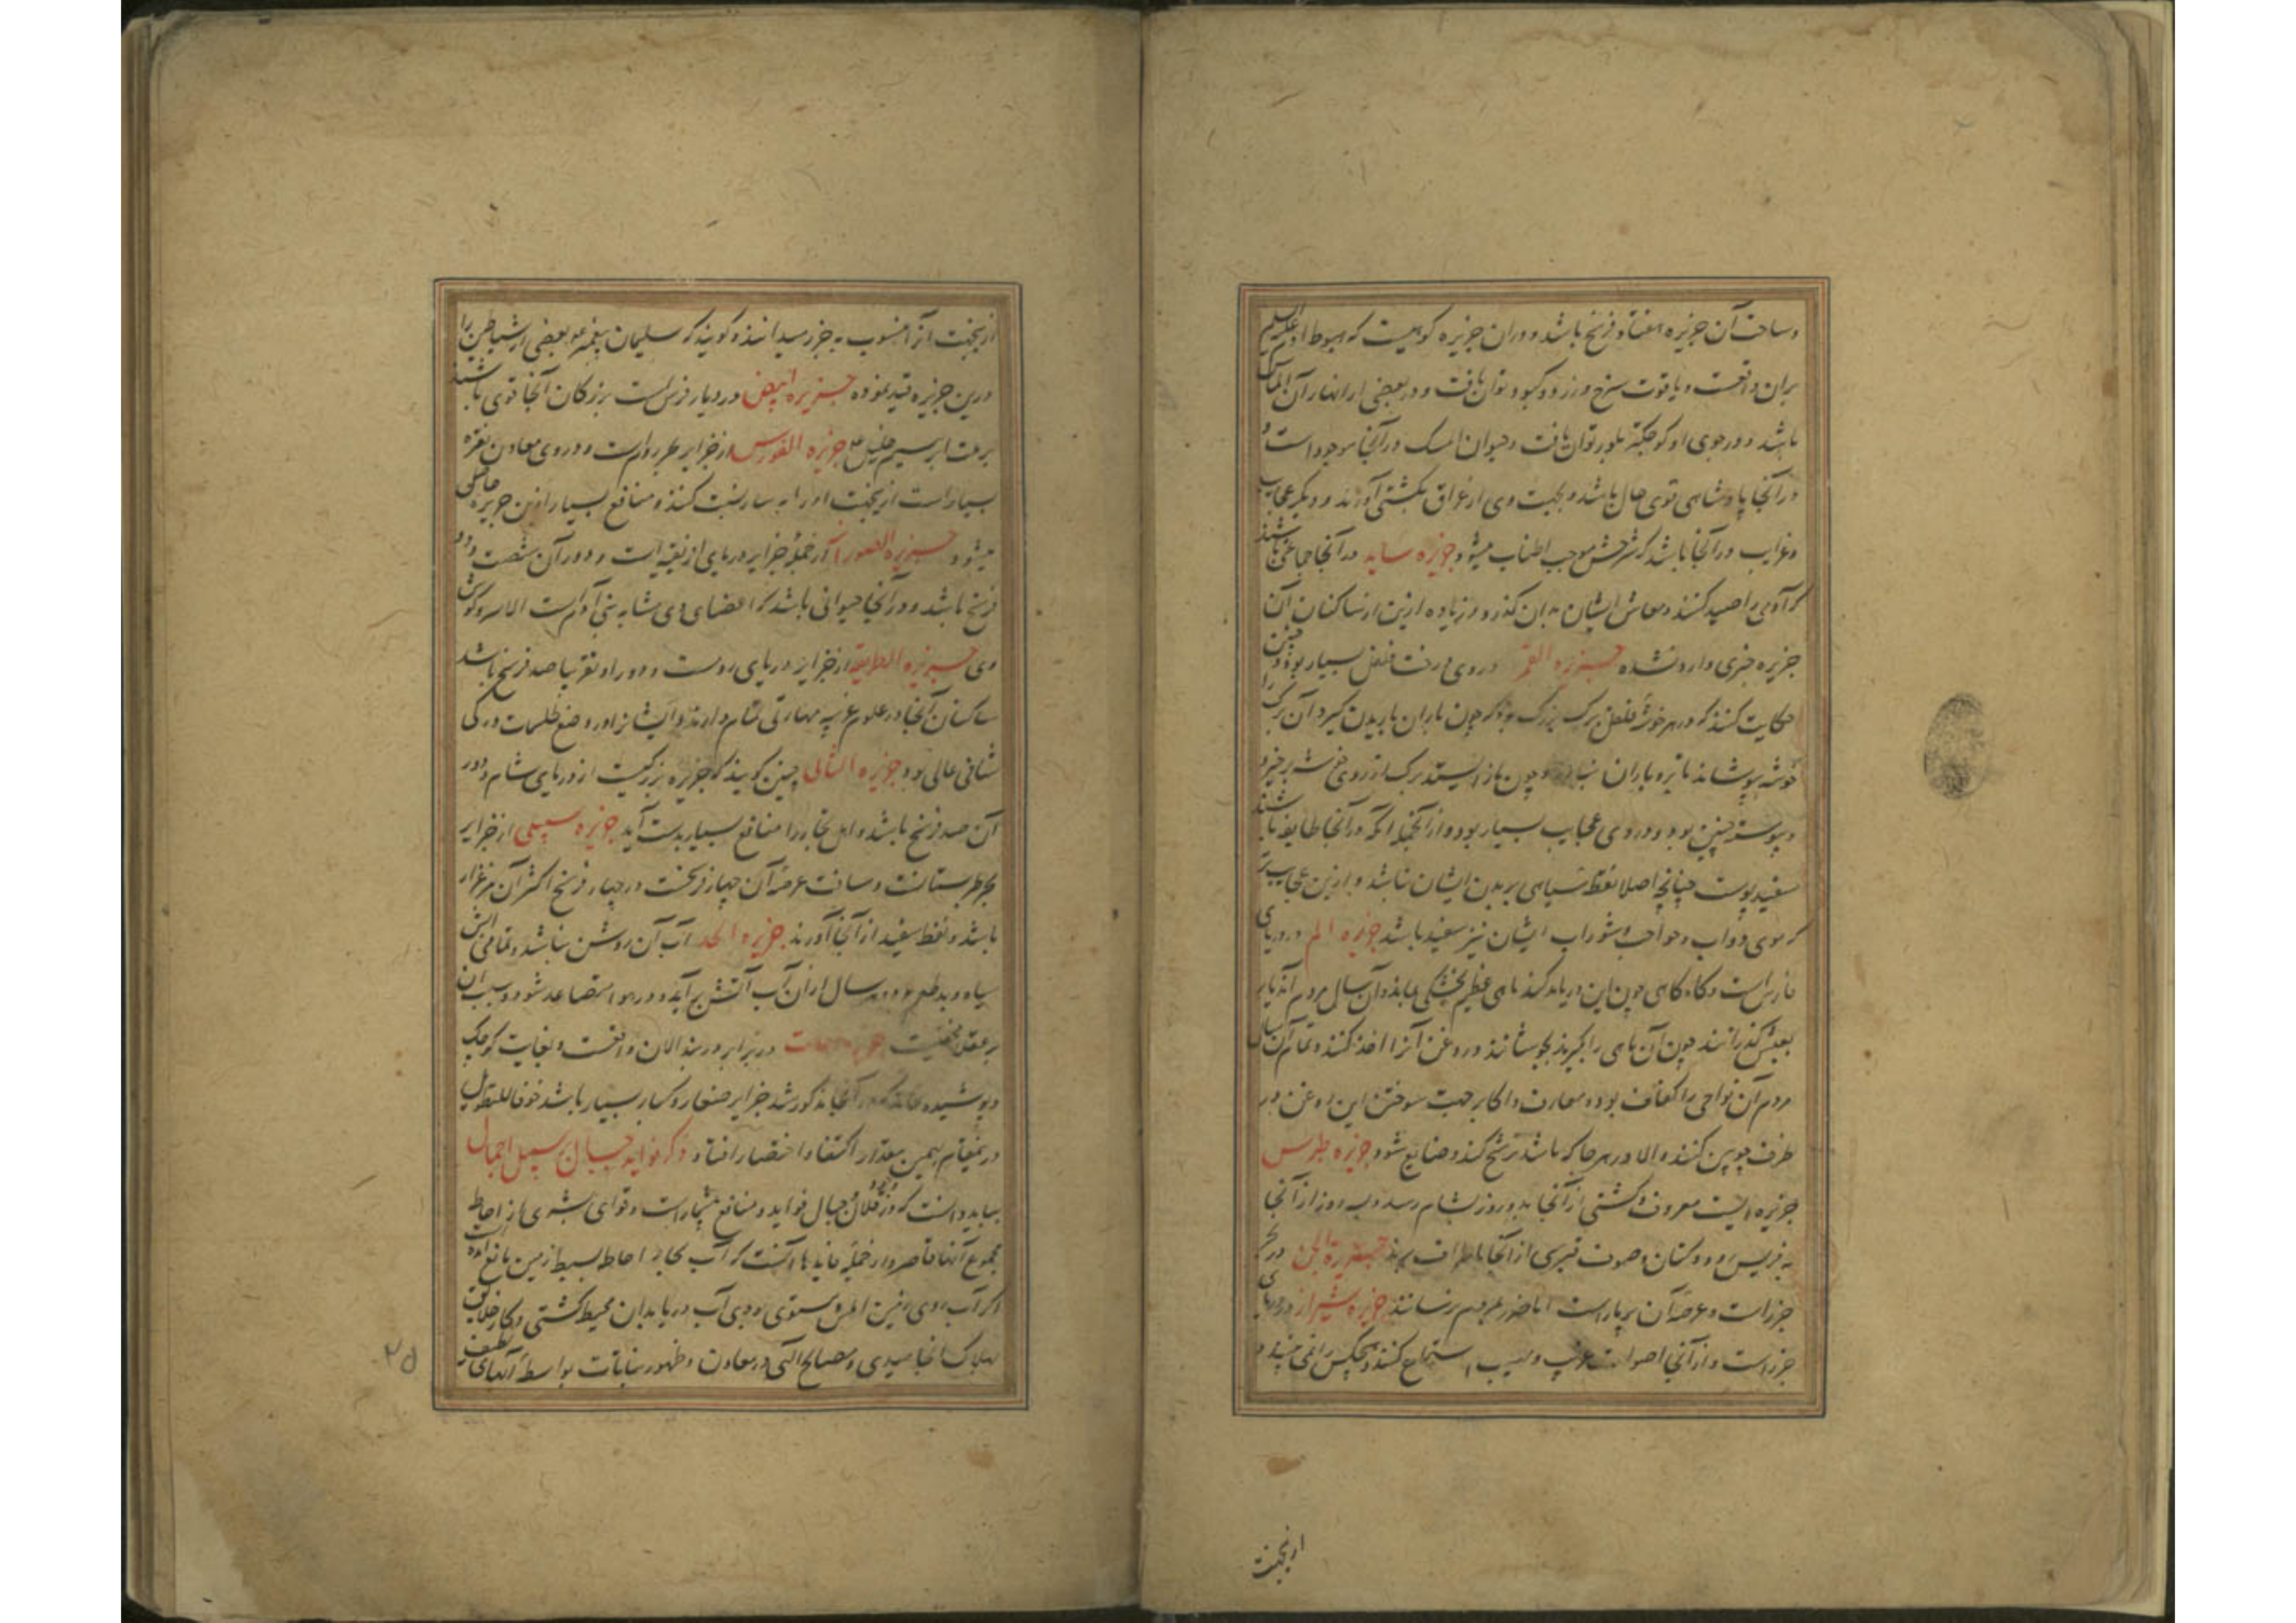 و مساحت آن جزیره هفتاد فرسخ باشد و در آن جزیره کوهیست که هبوط آدم علیه السلم
بران واقعست و یاقوت سرخ و زرد و کبود توان یافت و در بعضی از انهار آن الماس
باشد و در جوی او کوچکتر بلور توان یافت و حیوان المسک در آنجا موجود است و
در آنجا پادشاهی قوی حال باشد و بجهت وی از عراق بکشتی آورند و دیگر عجایب
و غرایب در آنجا باشد که شرحش موجب اطناب میشود جزیره سایه در آنجا جماعتی باشند
که آدمی را صید کنند و معاش ایشان بدان گذرد و زیاده ازین از ساکنان آن
جزیره خبری وارد نشده جزیره القمر در وی درخت فلفل بسیار بود و چنین
حکایت کنند که در هر خوشه فلفل برگ بزرگ بود که چون باران باریدن گیرد آن برگ را
خوشه بپوشاند تا برو باران نبارد و چون باز ایستد برگ از روی خوشه برخیزد
و پیوسته چنین بود و در وی عجایب بسیار بود و از آنجمله آنکه در آنجا طایفه باشند
سفید پوست چنانچه اصلا نقطه سیاهی بر بدن ایشان نباشد و ازین عجایب تر
که موی دواب ایشان نیز سفید باشد جزیره الم در دریای
فارس است و گاه گاهی چون این دریا مد کند ماهی عظیم بخشکی ماند و آن سال مردم
بعیش گذرانند چون آن ماهی را بگیرند بجوشانند و روغن آنرا اخذ کنند و تمام آن سال
مردم آن نواحی را کفاف بود و معارف و اکابر جهت سوختن این روغن در
ظرف چوبین کنند و الا در هر جا که باشد ترشح کند و ضایع شود جزیره طرس
جزیره ایست معروف و کشتی از آنجا بدو روز بشام رسد و بسه روز از آنجا
و صوف قبرسی از آنجا باطراف برند جزیرة الجن در بحر
خزر است و عرصه آن پربار است اما ضرر بمردم نرسانند جزیره شیراز در دریای
خزر است و از آنجا اصوات عجیب و مهیب استماع کنند و هیچکس را نمی‌بیند و
ازینجهت
ازینجهت آنرا منسوب به خزر میدانند و گویند که سلیمان پیغمبر بعضی از شیاطین را
درین جزیره قید نموده جزیره ابیض در دیار فرس است بزرگان آنجا قوی باشند
بر ملت ابرهیم خلیل جزیره القورس از جزایر است و در وی معادن نقره
بسیار است ازینجهت نسبت کنند و منافع بسیار ازین جزیره حاصل
میشود جزیره از جمله جزایر دریای افریقیه است و دور آن شصت و دو
فرسخ باشد و در آنجا حیوانی باشد که اعضای وی مشابه بنی آدم است الا سر و گوش
وی جزیره از جزایر دریای روم است و دور او تقریبا صد فرسخ باشد
ساکنان آنجا در علوم غریبه مهارتی تمام دارند و ایشانرا در وضع طلسمات و
شانی عالی بود جزیره الثالی چنین گویند که جزیره بزرگیست از دریای شام و دور
آن صد فرسخ باشد و اهل تجار را منافع بسیار بدست آید جزیره سیلی از جزایر
بحر طبرستانست و مساحت عرصه آن چهار فرسخست در چهار فرسخ اکثر آن مرغزار
باشد و نفط سفید از آنجا آورند جزیره آب آن روشن نباشد و تمامی آبش
سیاه و بدطعم بود و هر سال از آن آب آتش برآید و در هوا متصاعد شود و سبب آن
بر عقلا مخفیست در برابر دربند الان واقعست و بغایت کوچک
و پوشیده نماند که در آنجا مذکور شد جزایر صغار و کبار بسیار باشد خوفا للتطویل
درینمقام بهمین مقدار اکتفا و اختصار افتاد ذکر فواید جبال بر سبیل اجمال
بباید دانست که در خلال جبال فواید و منافع بیشمار است و قوای بشری از احاطه
مجموع آنها قاصر و از جمله فایدها آنست که آب بحار از احاطه بسیط زمین مانع آمده
اگر روی زمین املس مستوی بودی آب دریا بدان محیط گشتی و کار خلایق
بهلاک انجامیدی و مصالح الهی در معادن و ظهور نباتات بواسطه آبهای
۲۵